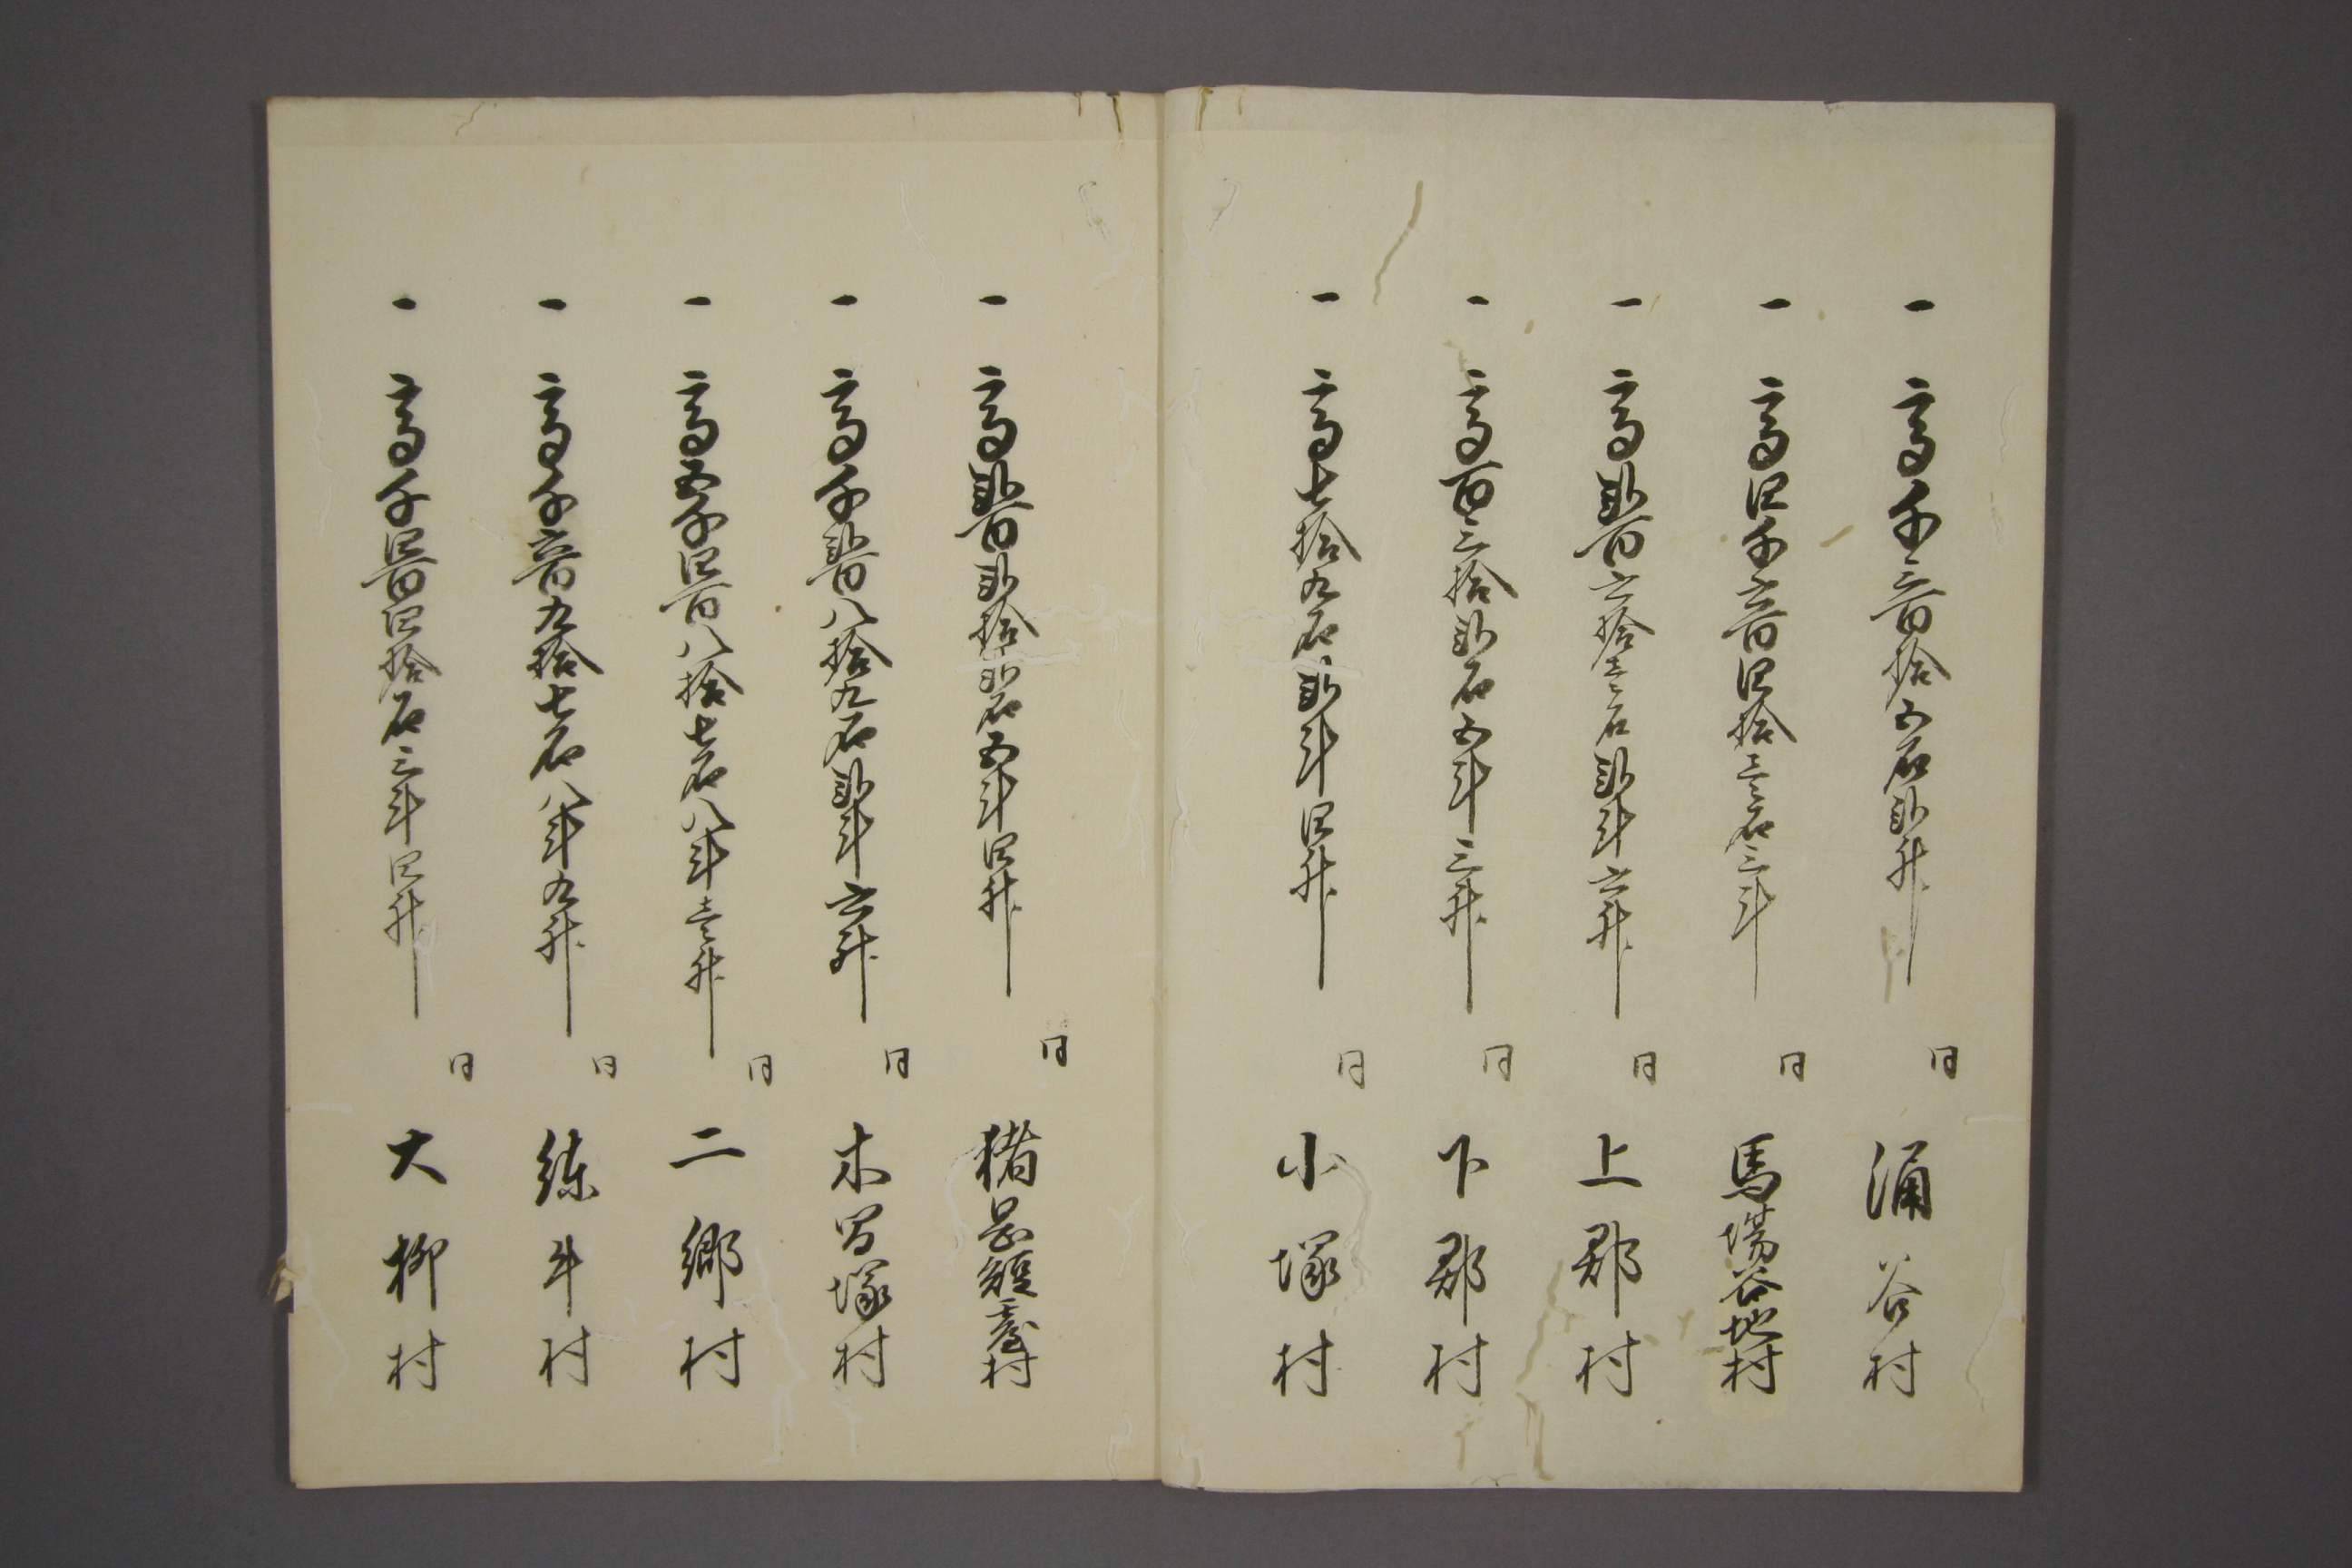 一高千三百拾五石弐升 同 涌谷村
一高四千六百四拾三石三斗 同 馬場谷地村
一高弐百六拾壱石弐斗六升 同 上郡村
一高百三拾弐石五斗三升 同 下郡村
一高七拾九石弐斗四升 同 小塚村
一高弐百弐拾弐石五斗四升 同 猪岡短臺村
一高千弐百八拾九石弐斗六升 同 木間塚村
一高五千四百八拾七石八斗壱升 同 二郷村
一高千六百九拾七石八斗九升 同 練牛村
一高千四百四拾石三斗四升 同 大柳村